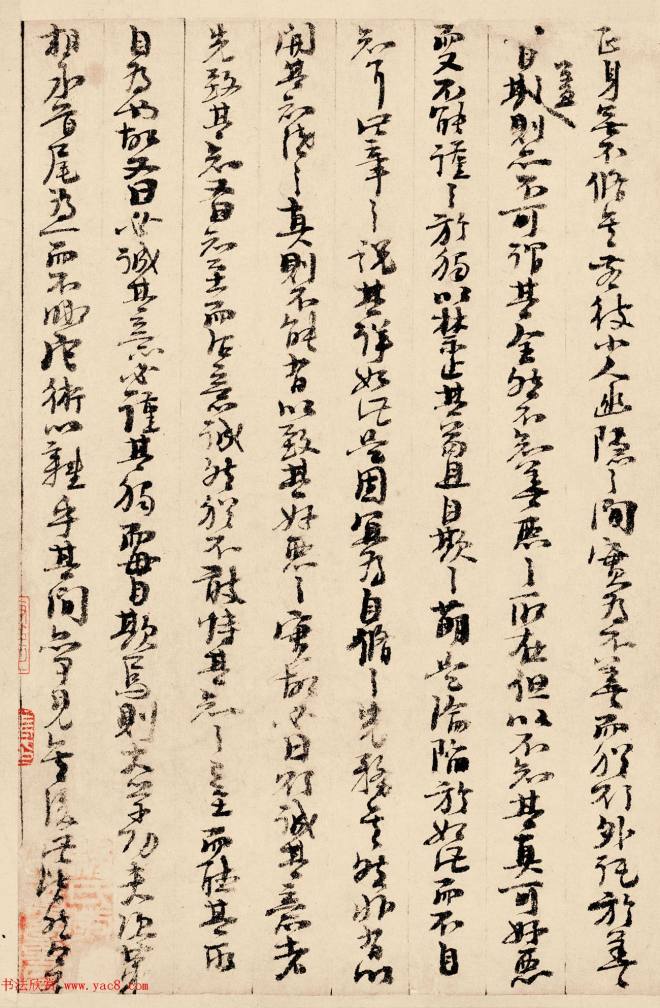 正身無不脩矣若彼小人幽隱之間實為不善而猶外託於善
自欺則亦不可謂其全然不知善惡之所在但以不知其真可好惡
蓋
而又不能謹之於獨以禁止其苟且自欺之萌是淪陷於如此而不自
知耳此章之說其詳如此是固宜為自脩之先務矣然非有以
開其知識之真則不能有以致其好惡之實故必曰欲誠其意者
先致其知又曰知至而后意誠然猶不敢恃其知之至而聽其所
自為也故又曰必誠其意必謹其獨而毋自欺焉則大學功夫次第
相承首尾為一而不假他術以雜乎其間亦可見矣後此皆然今不
书法欣赏 www.yac8.com